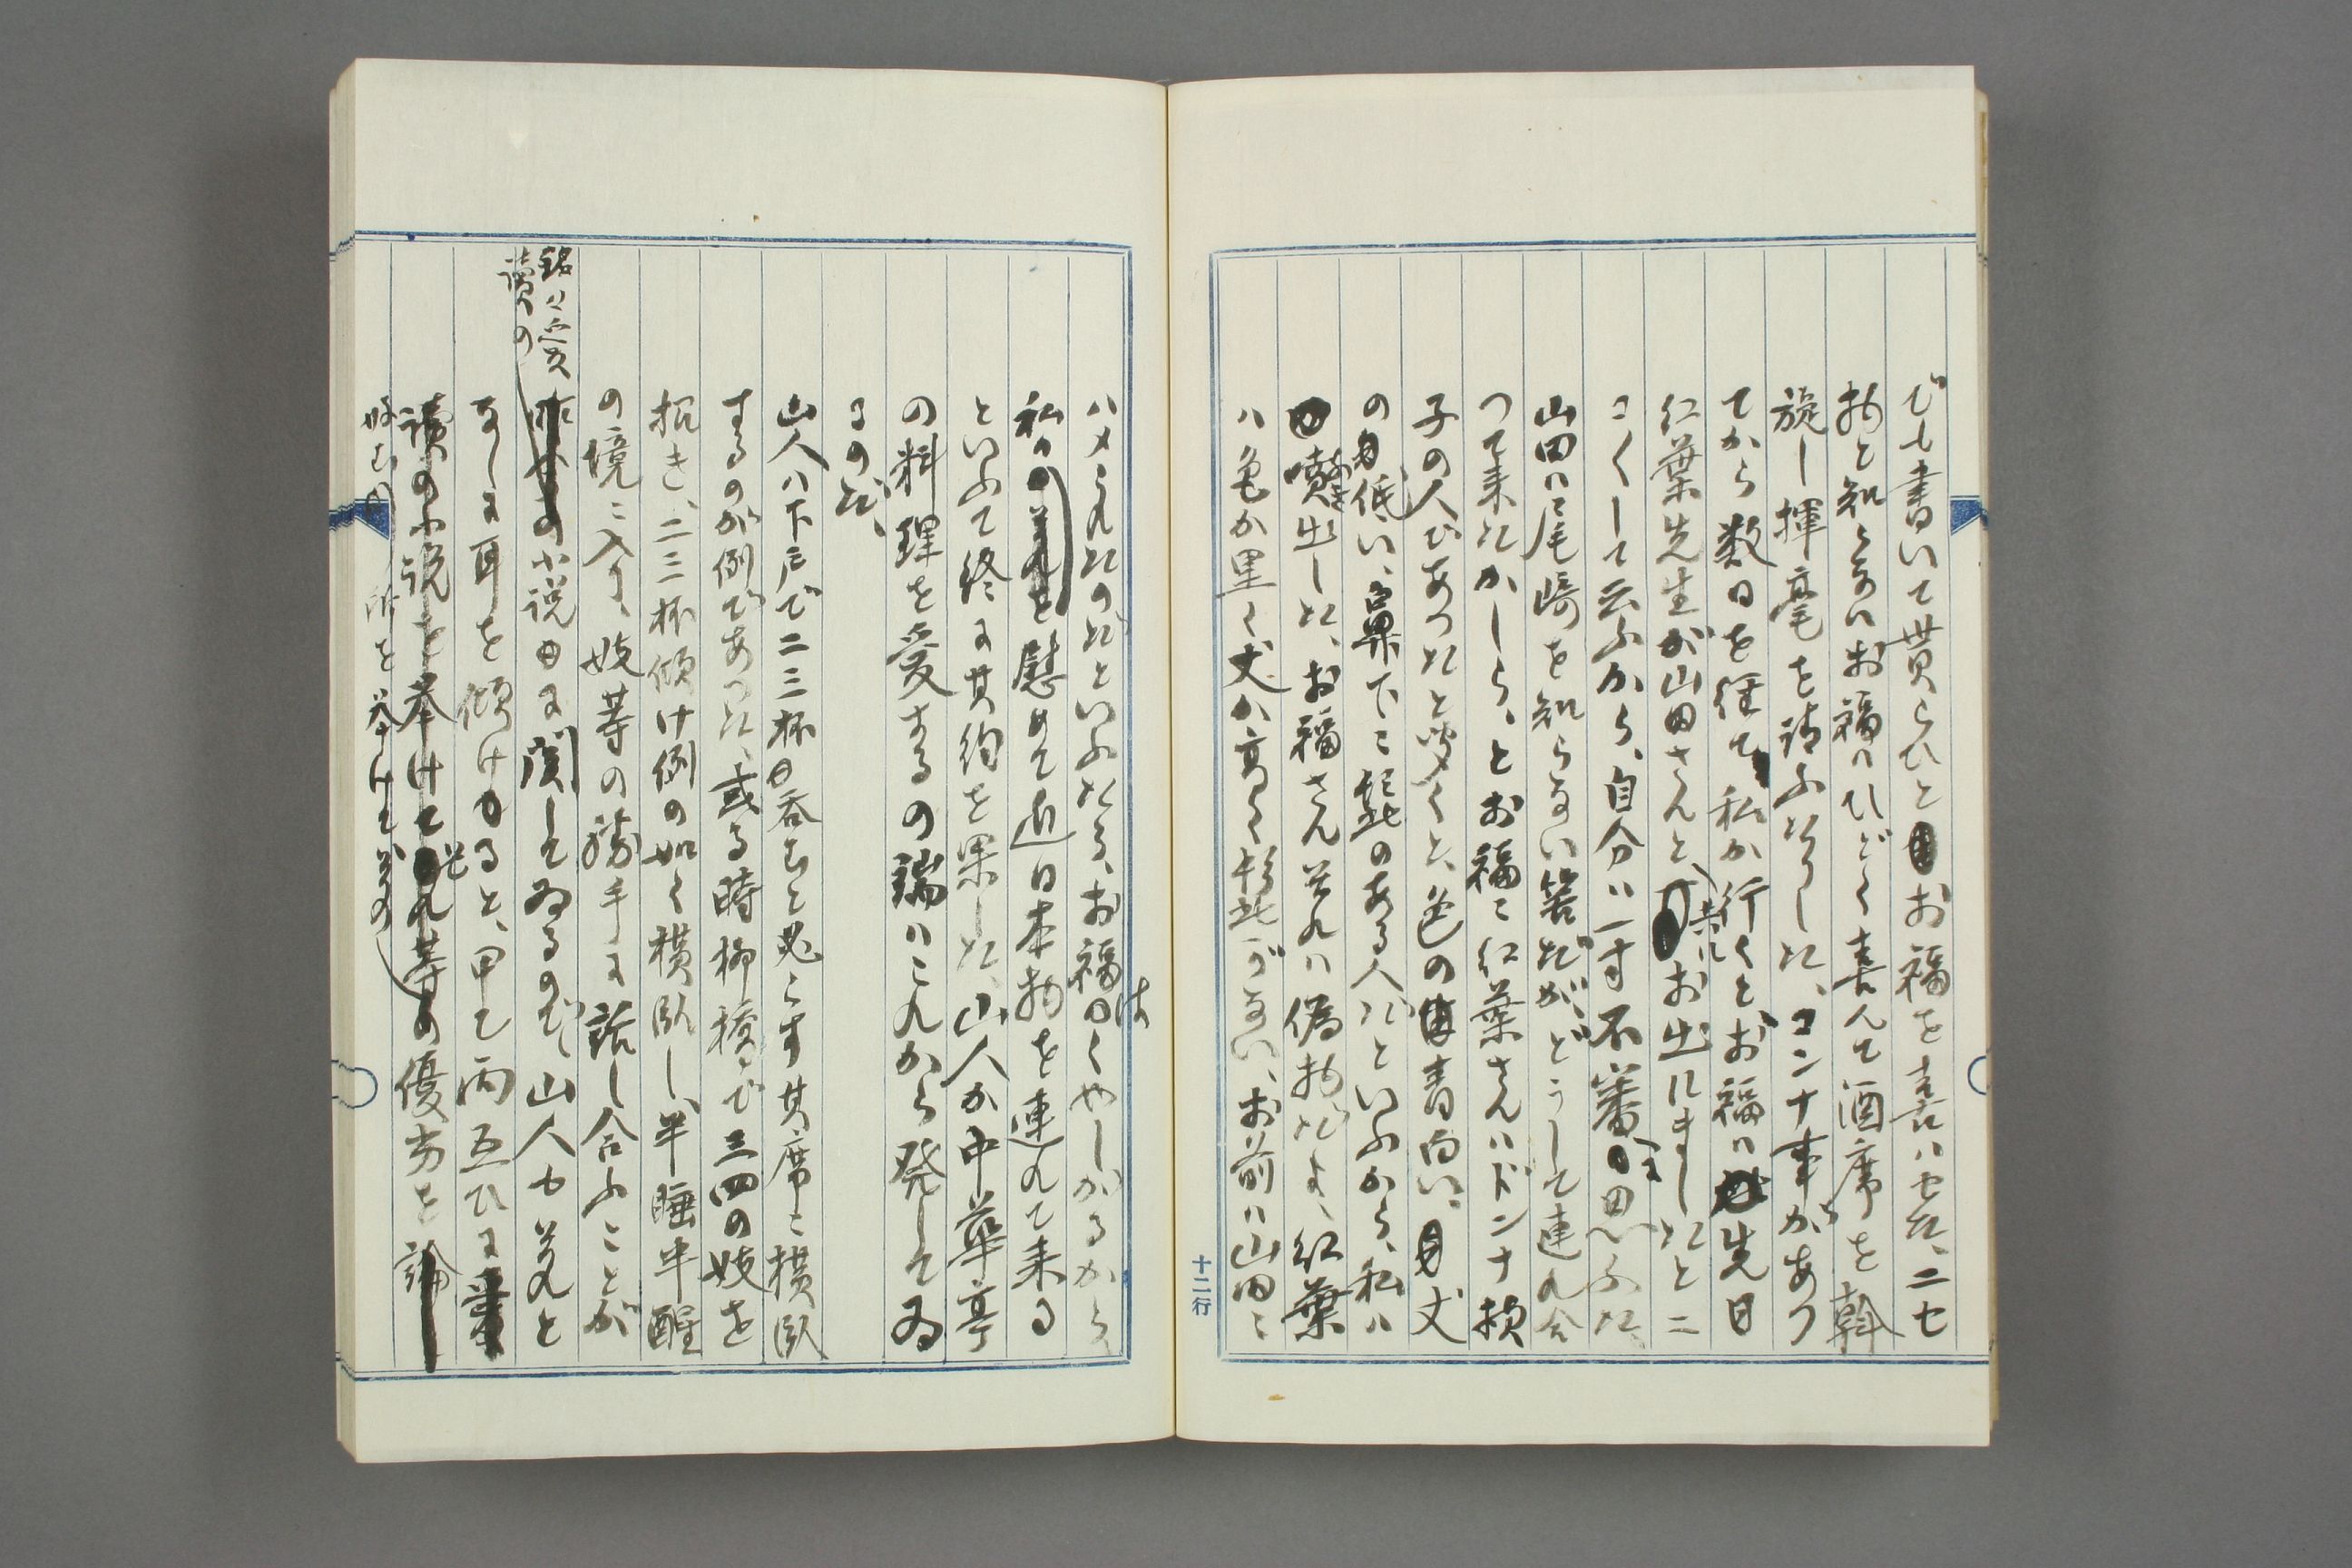 びも書いて貰らひとお福を喜ハせた、ニセ
物と知らないお福ハひどく喜んて酒席を斡
旋し揮毫を請ふたりした、コンナ事があつ
てから数日を経て私か行くとお福ハ先日
紅葉先生が山田さんと、お出ルましたとニ
コくして云ふから、自分ハ一寸不審に思ふた、
山田ハ尾崎を知らない筈だが、どうして連れ合
つて来たかしら、とお福ニ紅葉さんハドンナ様
子の人であつたと聞くと、色の青白い、丈
の低い、鼻下ニ髭のある人だといふから、私ハ
噴出した、お福さん其れハ偽物だよ、紅葉
ハ色か黒く丈か高く髭がない、お前ハ山田ニ
十二行
ハメられたのだといふたら、お福はくやしがるから
私ハ慰めて近日本物を連れて来る
といふて終に其約を果した、山人か中華亭
の料理を愛するの端ハこれから発してゐ
るのだ、
山人ハ下戸で二三杯呑むと必らす其席ニ横臥
するのが例であつた、或る時柳橋で三四の妓を
招き、二三杯傾け例の如く横臥し、半睡半醒
の境ニ入り、妓等の勝手に話し合ふことが
銘々愛
讀の
小説に関してゐるので、山人も其れと
なしに耳を傾けると、甲乙丙互ひに
讀の小説を挙けて其れ等の優劣を論
好む所を挙けて其の